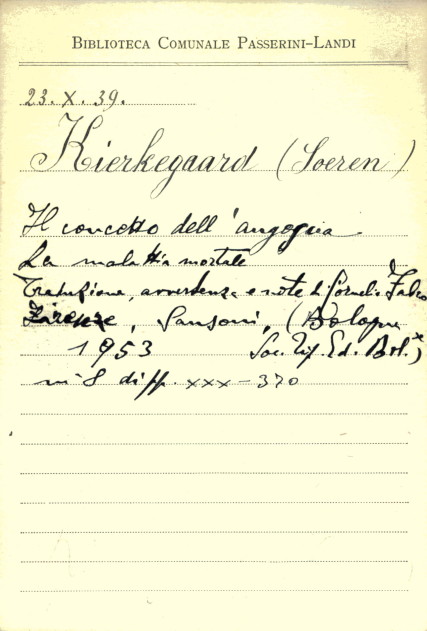 BIBLIOTECA COMUNALE PASSERINI-LANDI
23. X. 39.
Kierkegaard (Soeren)
Il concetto dell'angoscia
La malattia mortale
Traduzione, avvertenza e note di Cornelio Fabro
Firenze, Sansoni, (Bologna
1953 Soc. Tip. Ed. Bol.)
in 8 di pp. XXX-370